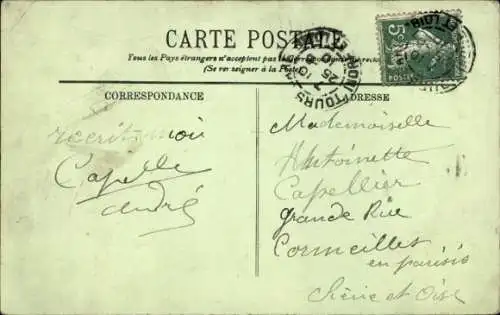 CARTE POSTALE
Tous les Pays étrangers n'acceptent pas la
(Se renseigner à la Poste)
CORRESPONDANCE
ADRESSE
TOURS
25
5c
POSTES
Mademoiselle
Antoinette
Capellier
grande Rue
Cormeilles
en parisis
Seine et Oise
moi
Capelle
andré